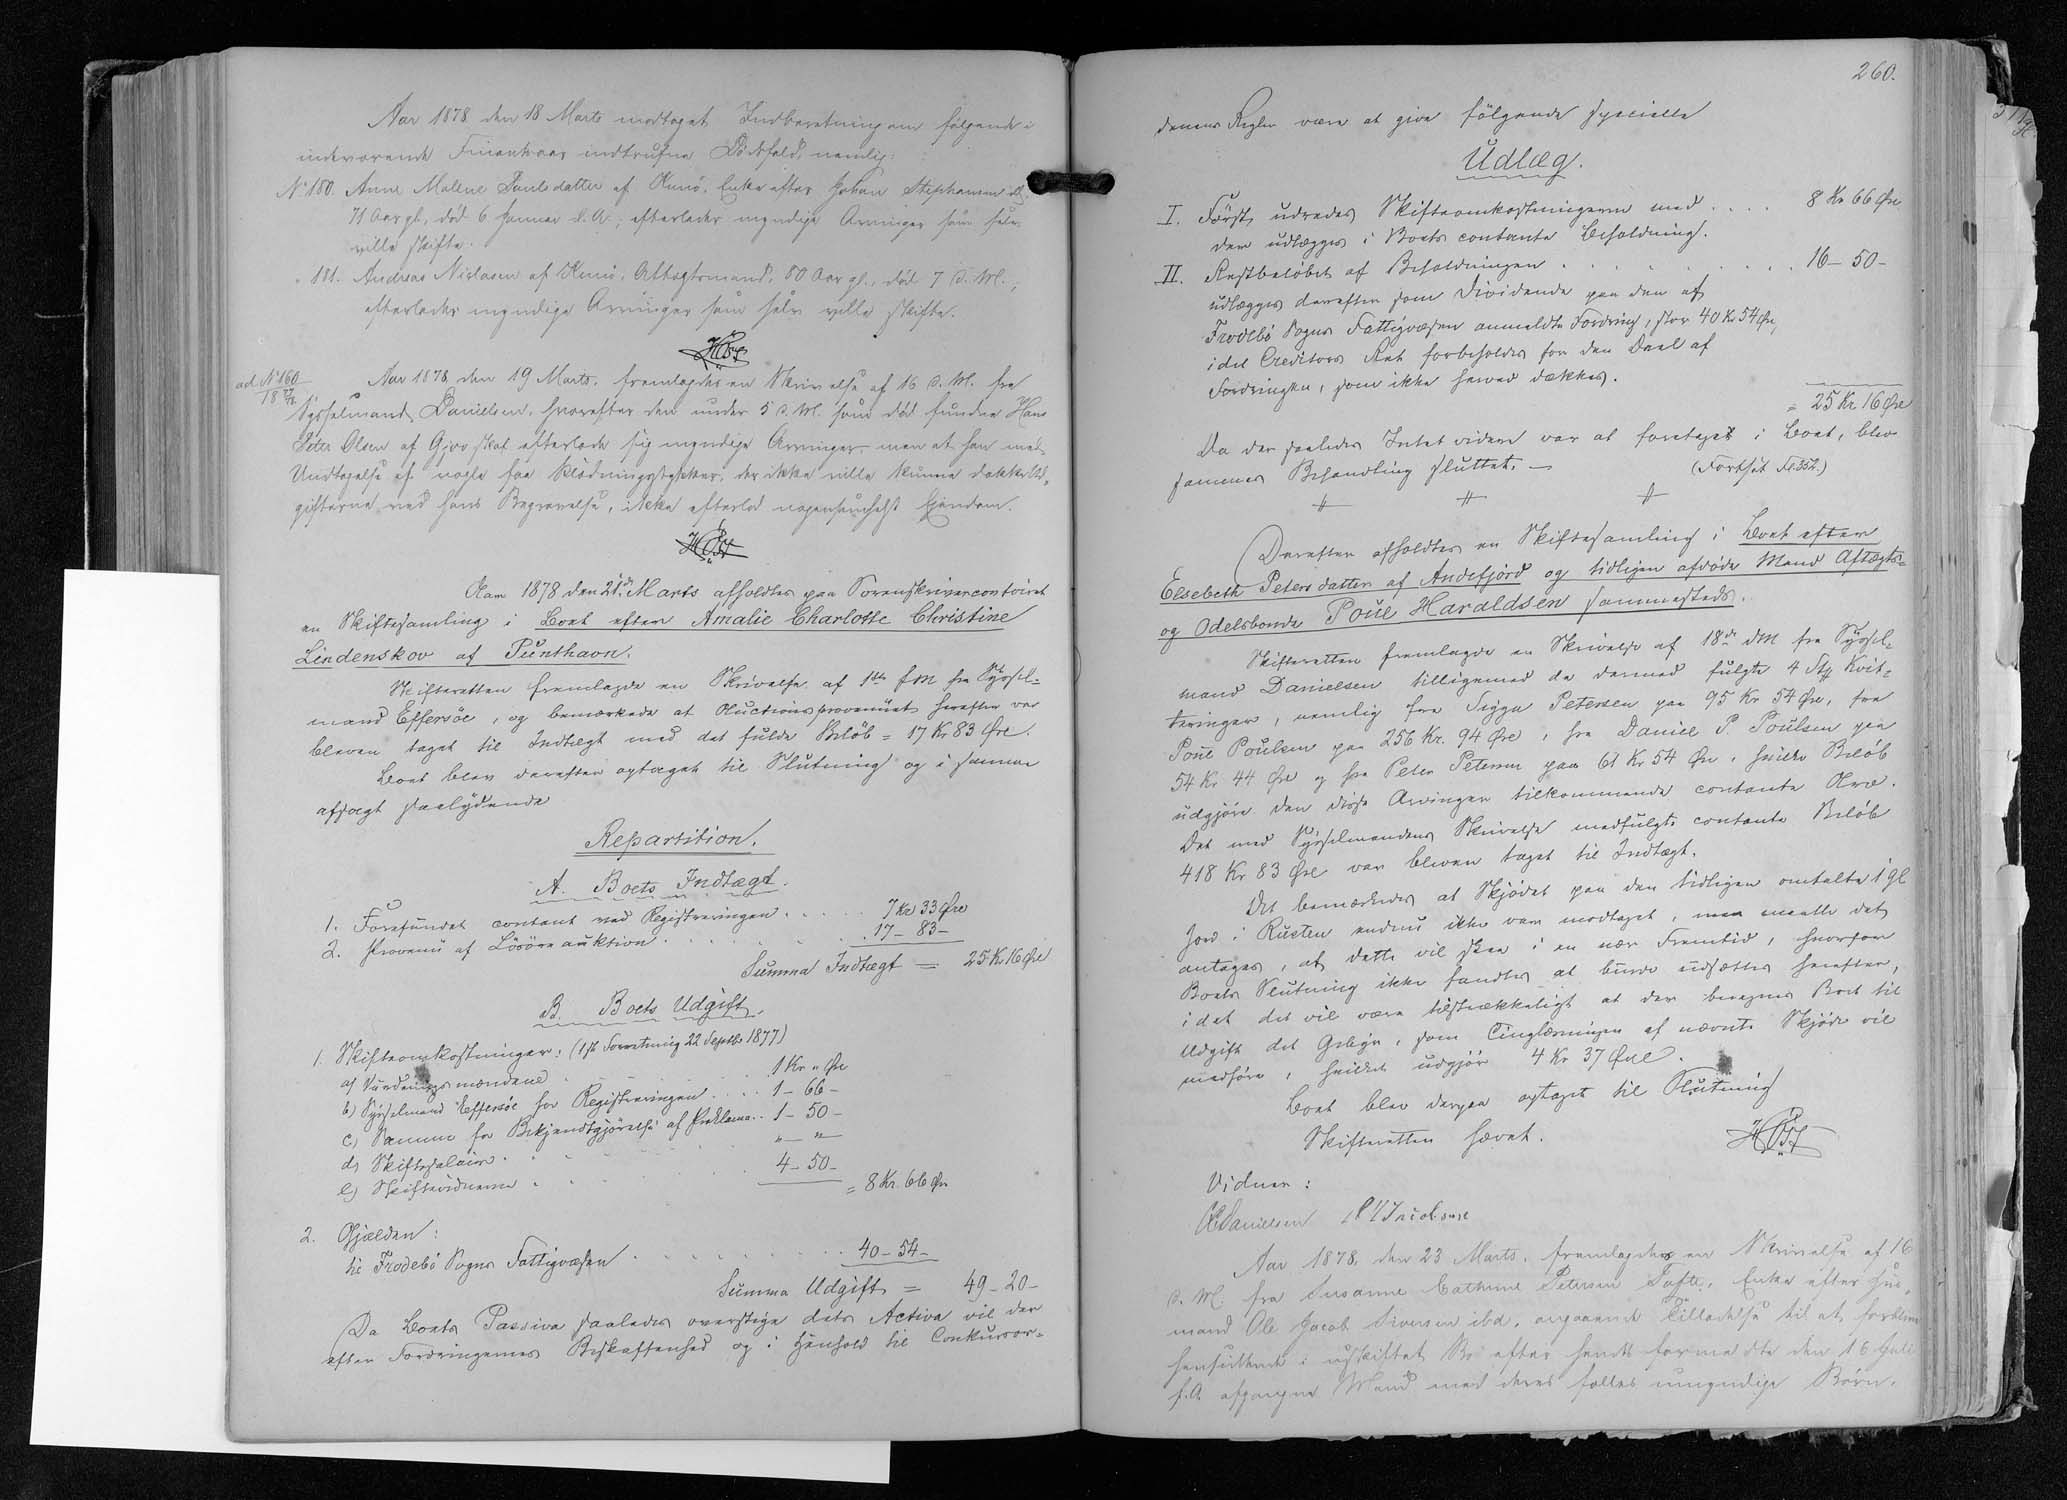 Aar 1878 den 18 Marts modtaget Indberetning om følgende i
indeværende Finantsaar indtrufne Dödsfald, nemlig:
No 180. Anne Malene Poulsdatter af Kunö, Enke efter Johan Stephansen ibd.
71 Aar gl., död 6 Januar d. A.; efterlader myndige Arvinger som selv
ville skifte.
" 181. Andreas Niclasen af Kunö, Aftægtsmand, 80 Aar gl., död 7 d. M.,
efterlader myndige Arvinger som selv ville skifte.
HÖst
ad. No 160
18 77/78
Aar 1878, den 19 Marts, fremlagdes en Skrivelse af 16 d. M. fra
Sysselmand Danielsen, hvorefter den under 5 d. M. som död fundne Hans
Peter Olsen af Gjov skal efterlade sig myndige Arvinger men at han med
Undtagelse af nogle faa Klædningsstykker, der ikke ville kunne dække Ud-
gifterne ved hans Begravelse, ikke efterlod nogensomhelst Ejendom.
HÖst
Aar 1878 den 21de Marts afholdtes paa Sorenskrivercontoiret
en Skiftesamling i Boet efter Amalie Charlotte Christine
Lindenskov af Punthavn.
Skifteretten fremlagde en Skrivelse af 1ste f M fra Syssel-
mand Effersöe, og bemærkede at Auctionsprovenuet herefter var
bleven taget til Indtægt med det fulde Belöb = 17 Kr 83 Øre.
Boet blev derefter optaget til Slutning og i samme
afsagt saalydende
Repartition.
A. Boets Indtægt.
1. Forefundet contant ved Registreringen . . . . 7 Kr 33 Øre
2. Provenu af Lösöreauktion . . . . . . . 17 - 83 -
Summa Indtægt = 25 Kr 16 Øre
B. Boets Udgift.
1. Skifteomkostninger: (1ste Forretning 22 Septbr 1877)
a) Vurderingsmændene . . . 1 Kr " Øre
b) Sysselmand Effersöe for Registreringen . . . . 1 - 66 -
c) Samme for Bekjendtgjörelse af Proklama . . 1 - 50 -
d) Skiftesalair . . . . . " — "
e) Skiftevidnerne . . . . 4 - 50 -
= 8 Kr. 66 Øre
2. Gjælden:
til Frodebö Sogns Fattigvæsen . . . . . . . . 40 - 54 -
Summa Udgift = 49 - 20 -
Da Boets Passiva saaledes overstige dets Activa vil der
efter Fordringernes Beskaffenhed og i Henhold til Conkursor-
260.
denens Regler være at give følgende specielle
Udlæg.
I. Först udredes Skifteomkostningerne med . . . . 8 Kr 66 Øre
der udlægges i Boets contante Beholdning.
II. Restbelöbet af Beholdningen . . . . . . . . 16 - 50 -
udlægges derefter som Dividende paa den af
Frodebö Sogns Fattigvæsen anmeldte Fordring, stor 40 Kr 54 Øre,
idet Creditors Ret forbeholdes for den Deel af
Fordringen, som ikke herved dækkes.
= 25 Kr. 16 Øre
Da der saaledes Intet videre var at foretage i Boet, blev
sammes Behandling sluttet. — (Fortsat Fol 352.)
Derefter afholdtes en Skiftesamling i Boet efter
Elsebeth Petersdatter af Andefjord og tidligere afdøde Mand Aftægts-
og Odelsbonde Poul Haraldsen sammesteds.
Skifteretten fremlagde en Skrivelse af 18de dM fra Syssel-
mand Danielsen tilligemed de dermed fulgte 4 Stk Kvit-
teringer, nemlig fra Sigga Petersen paa 95 Kr 54 Øre, fra
Poul Poulsen paa 256 Kr. 94 Øre, fra Daniel P. Poulsen paa
54 Kr 44 Øre og fra Peter Petersen paa 61 Kr 54 Øre, hvilke Belöb
udgjöre den disse Arvinger tilkommende contante Arv.
Det med Sysselmandens Skrivelse medfulgte contante Belöb
418 Kr 83 Øre var bleven taget til Indtægt.
Det bemærkedes at Skjödet paa den tidligere omtalte 1 gl
Jord i Rusten endnu ikke var modtaget, men maatte det
antages, at dette vil skee i en nær Fremtid, hvorfor
Boets Slutning ikke fandtes at burde udsættes herefter,
idet det vil være tilstrækkeligt at der beregnes Boet til
Udgift det Gebyr, som Tinglæsningen af nævnte Skjöde vil
medføre, hvilket udgjör 4 Kr 37 Øre.
Boet blev derpaa optaget til Slutning
Skifteretten hævet.
HÖst
Vidner:
Danielsen Jacobsen
Aar 1878, den 23 Marts, fremlagdes en Skrivelse af 16
d. M. fra Susanne Cathrine Petersen Tofte, Enke efter Huus-
mand Ole Jacob Siversen ibd. angaaende Tilladelse til at forblive
hensiddende i uskiftet Bo efter hendes formeldte den 16 Juli
f. A. afgangne Mand med deres fælles umyndige Børn.